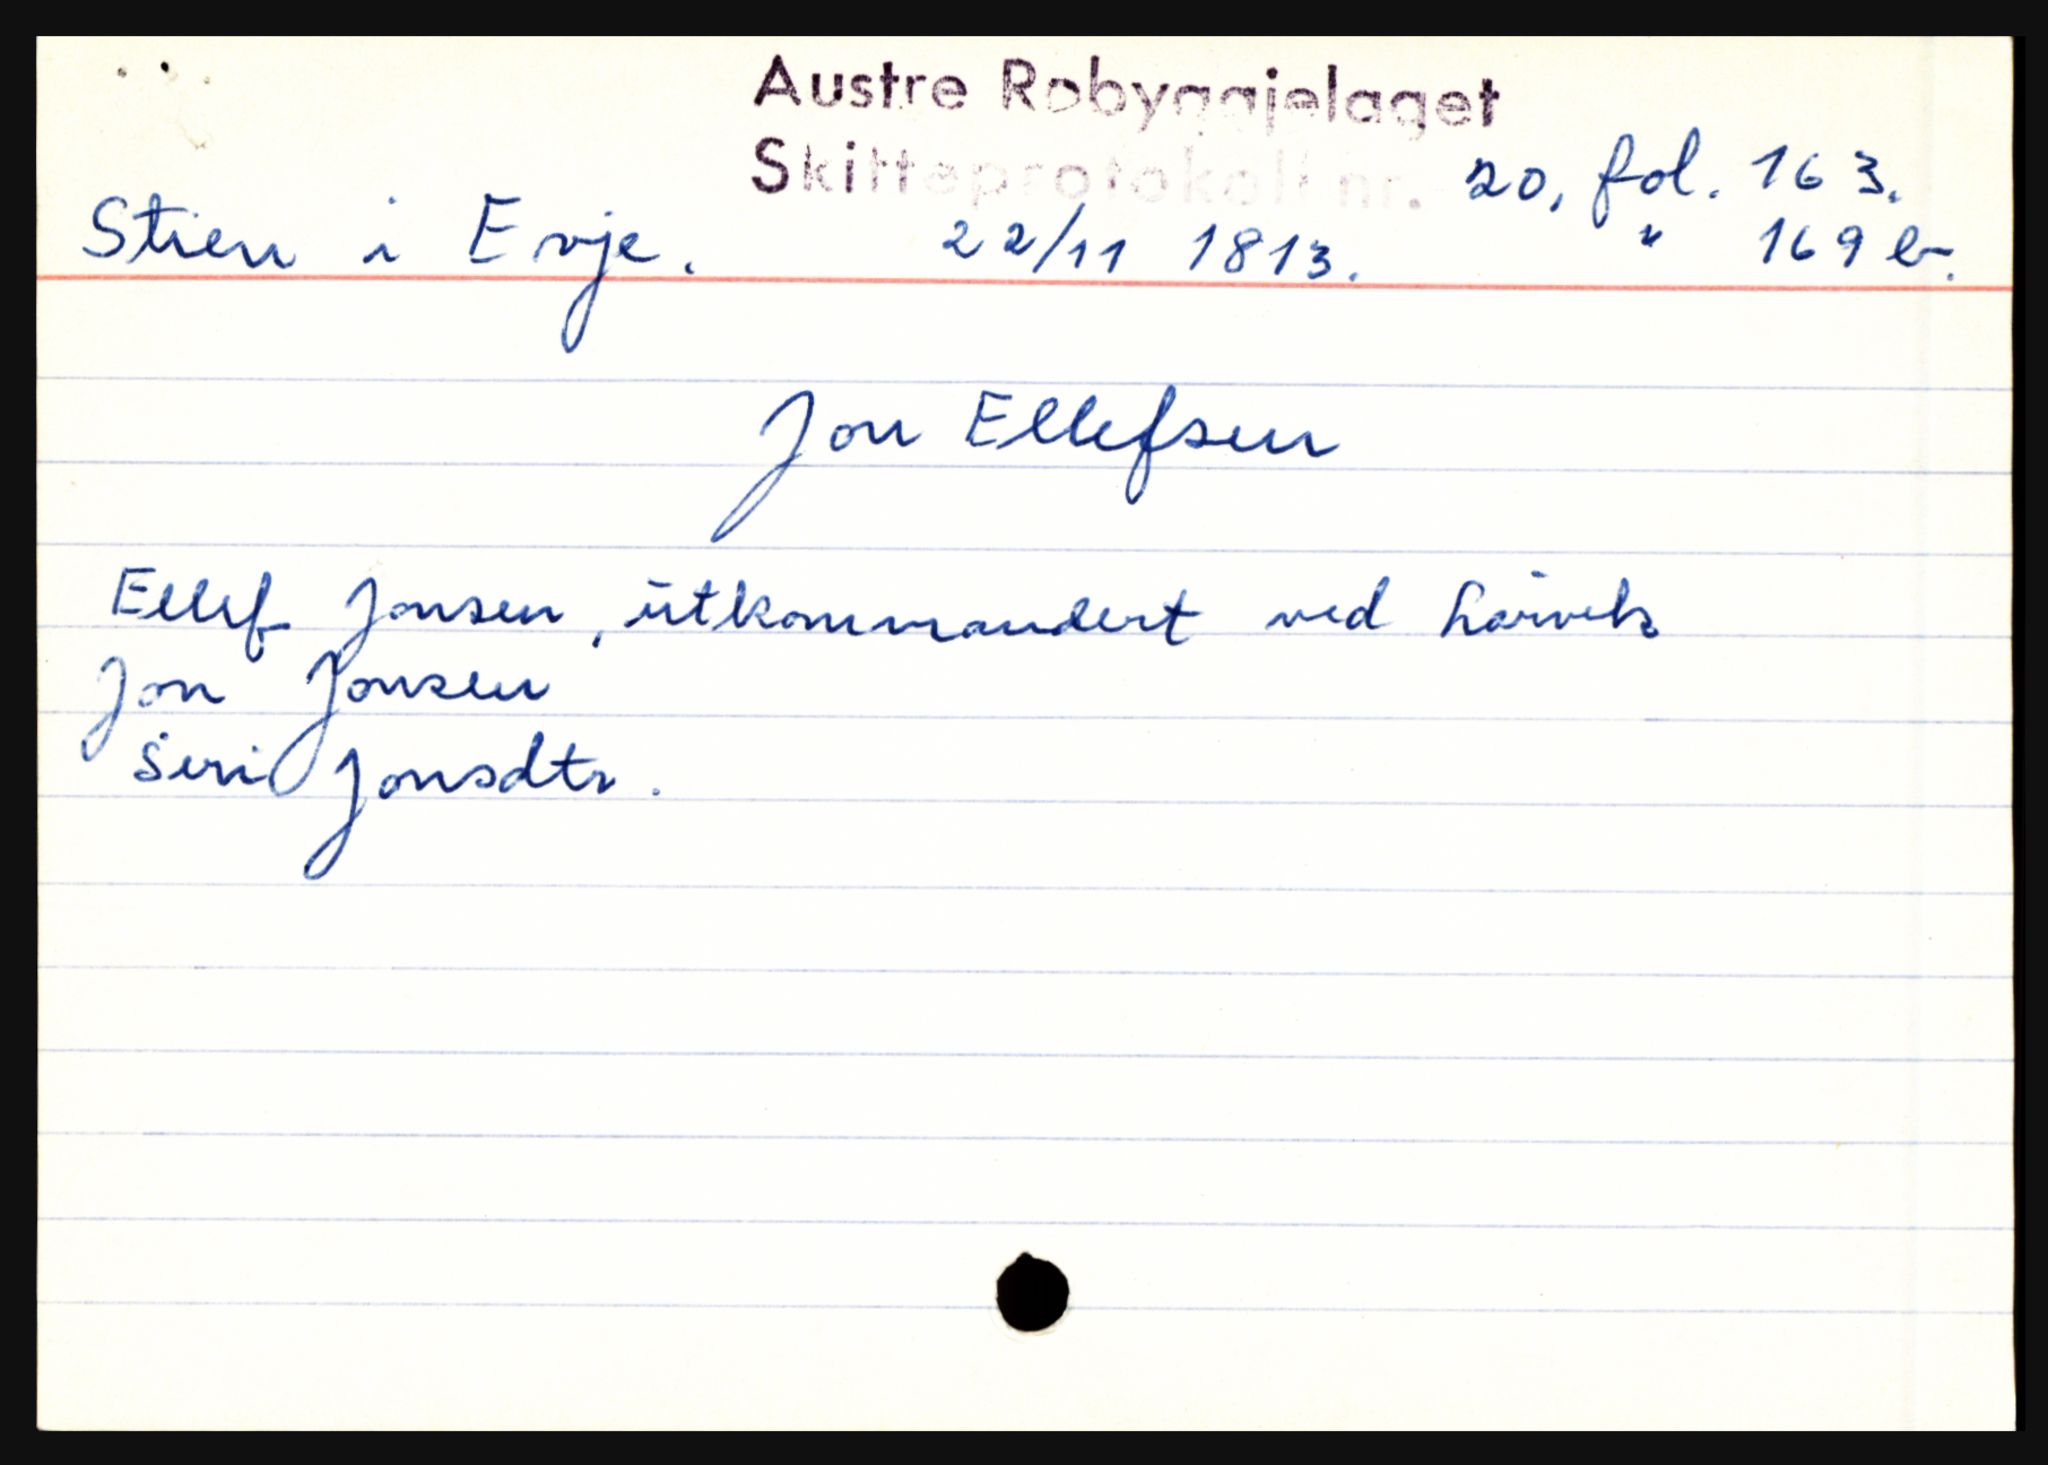 Austre Robyggjelaget
Skifteprotokoll nr. 20, fol. 163.
Stien i Evje. 22/11 1813. " 169 b.
Jon Ellefsen
Ellef Jonsen, utkommandert ved
Jon Jonsen
Siri Jonsdtr.